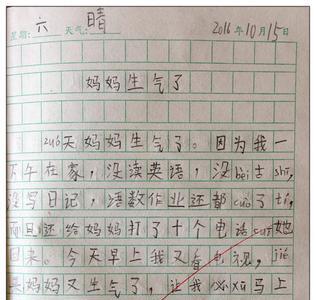 星期：六 天气：晴 2016年10月15日
妈妈生气了
zuó天妈妈生气了。因为我一
下午在家，没读英语，没bèi古shī，
没写日记，语数作业还都cuò了tí，
而且还给妈妈打了十个电话cuī她
回来。今天早上我又看电视，jié
果妈妈又生气了，让我 马上